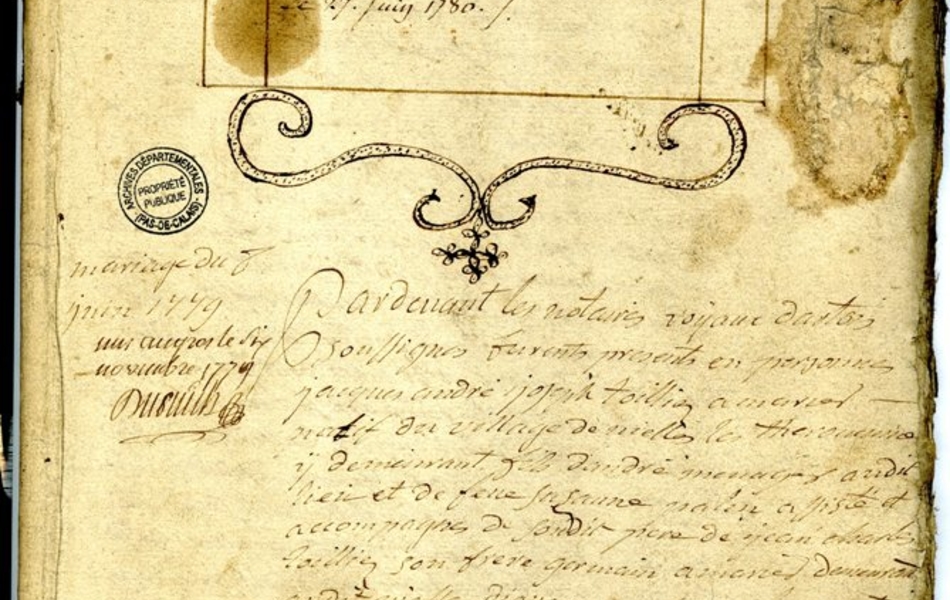 le 27. juin 1780. /.
ARCHIVES DÉPARTEMENTALES
PROPRIÉTÉ
PUBLIQUE
(PAS-DE-CALAIS)
mariage du 8
juin 1779
mis au gros le six
novembre 1779
Pardevant les notaires royaux dartois
soussignes furents presents en personne
jacques andré joseph toillier a marier
natif du village de nielles les therouanne
ÿ demeurant fils dandré menager audit
lieu et de feue susanne palin assisté et
accompagnes de sondit pere de jean charles
toillier son frere germain a marier demeurant